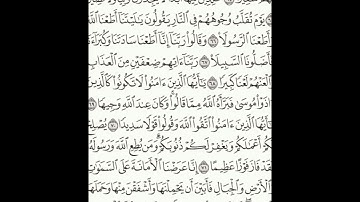 يَوْمَ تُقَلَّبُ وُجُوهُهُمْ فِي ٱلنَّارِ يَقُولُونَ يَٰلَيْتَنَآ أَطَعْنَا ٱللَّهَ
أَطَعْنَا ٱلرَّسُولَا۠ ٦٦ وَقَالُوا۟ رَبَّنَآ إِنَّآ أَطَعْنَا سَادَتَنَا وَكُبَرَآءَ
فَأَضَلُّونَا ٱلسَّبِيلَا۠ ٦٧ رَبَّنَآ ءَاتِهِمْ ضِعْفَيْنِ مِنَ ٱلْعَذَابِ
ٱلْعَنْهُمْ لَعْنًا كَبِيرًا ٦٨ يَٰٓأَيُّهَا ٱلَّذِينَ ءَامَنُوا۟ لَا تَكُونُوا۟ كَٱلَّ
ءَاذَوْا۟ مُوسَىٰ فَبَرَّأَهُ ٱللَّهُ مِمَّا قَالُوا۟ وَكَانَ عِندَ ٱللَّهِ وَجِيهًا ٦٩
يَٰٓأَيُّهَا ٱلَّذِينَ ءَامَنُوا۟ ٱتَّقُوا۟ ٱللَّهَ وَقُولُوا۟ قَوْلًا سَدِيدًا ٧٠ يُصْلِحْ
كُمْ أَعْمَٰلَكُمْ وَيَغْفِرْ لَكُمْ ذُنُوبَكُمْ وَمَن يُطِعِ ٱللَّهَ وَرَسُولَهُۥ
قَدْ فَازَ فَوْزًا عَظِيمًا ٧١ إِنَّا عَرَضْنَا ٱلْأَمَانَةَ عَلَى ٱلسَّمَٰوَٰتِ
ٱلْأَرْضِ وَٱلْجِبَالِ فَأَبَيْنَ أَن يَحْمِلْنَهَا وَأَشْفَقْنَ مِنْهَا وَحَمَلَهَا